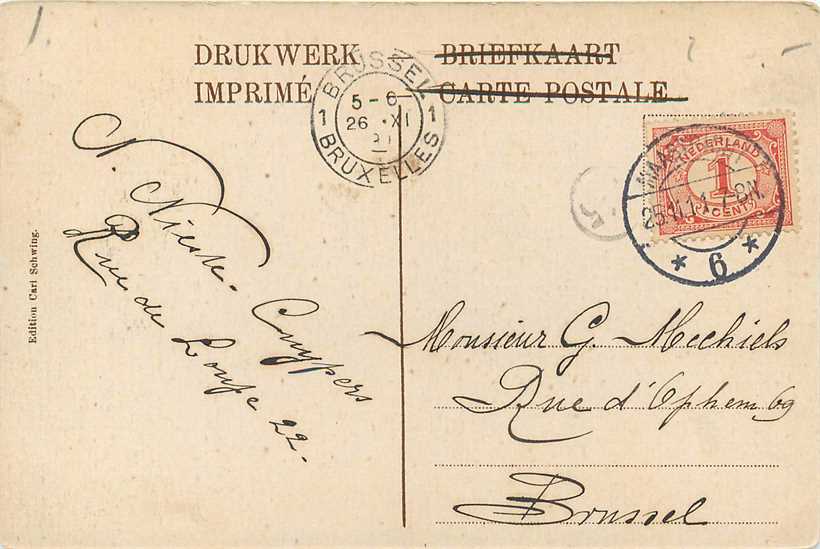 DRUKWERK BRIEFKAART
IMPRIMÉ CARTE POSTALE
BRUSSEL
1 5-6 1
26 XI
BRUXELLES
NEDERLAND
1
CENT
25.11.11. 7-8N.
* 6 *
N. Niest-Cuypers
Rue de Loupe 22.
Edition Carl Schwing.
Monsieur G. Mechiels
Rue d'Ophem 69
Brussel